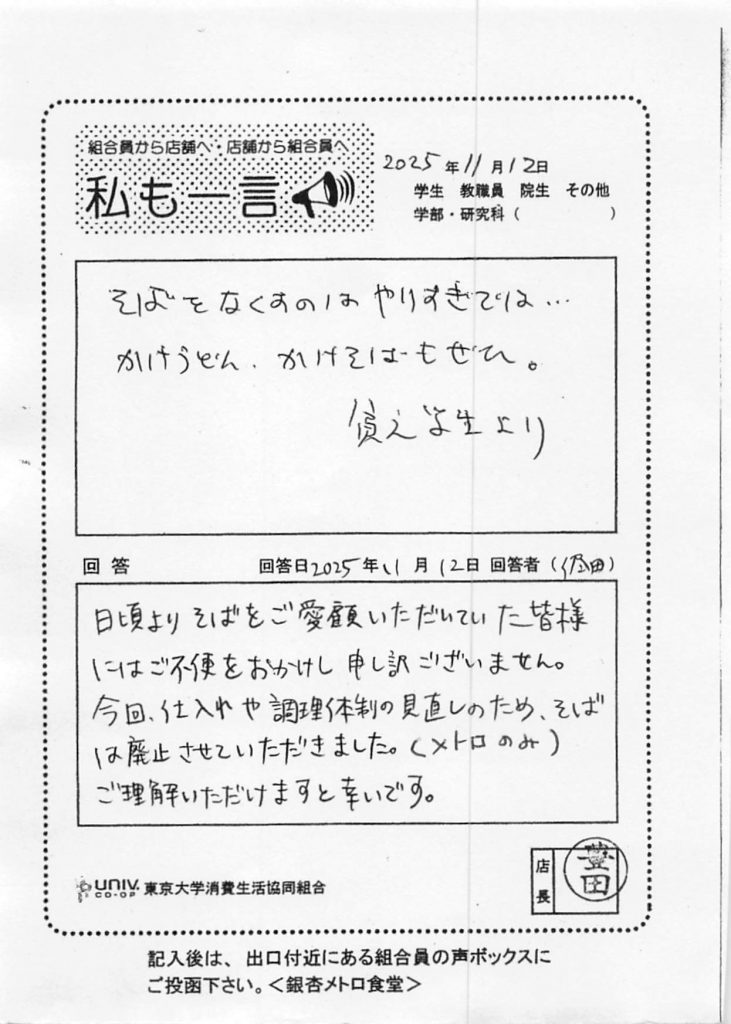 組合員から店舗へ・店舗から組合員へ
私も一言
2025年11月12日
学生 教職員 院生 その他
学部・研究科( )
そばをなくすのはやりすぎでは…
かけうどん、かけそばもぜひ。
貧乏学生より
回答
回答日2025年11月12日 回答者(田)
日頃よりそばをご愛顧いただいていた皆様
にはご不便をおかけし申し訳ございません。
今回、仕入れや調理体制の見直しのため、そば
は廃止させていただきました。(メトロのみ)
ご理解いただけますと幸いです。
UNIV.
CO-OP
東京大学消費生活協同組合
店長
豊田
記入後は、出口付近にある組合員の声ボックスに
ご投函下さい。<銀杏メトロ食堂>